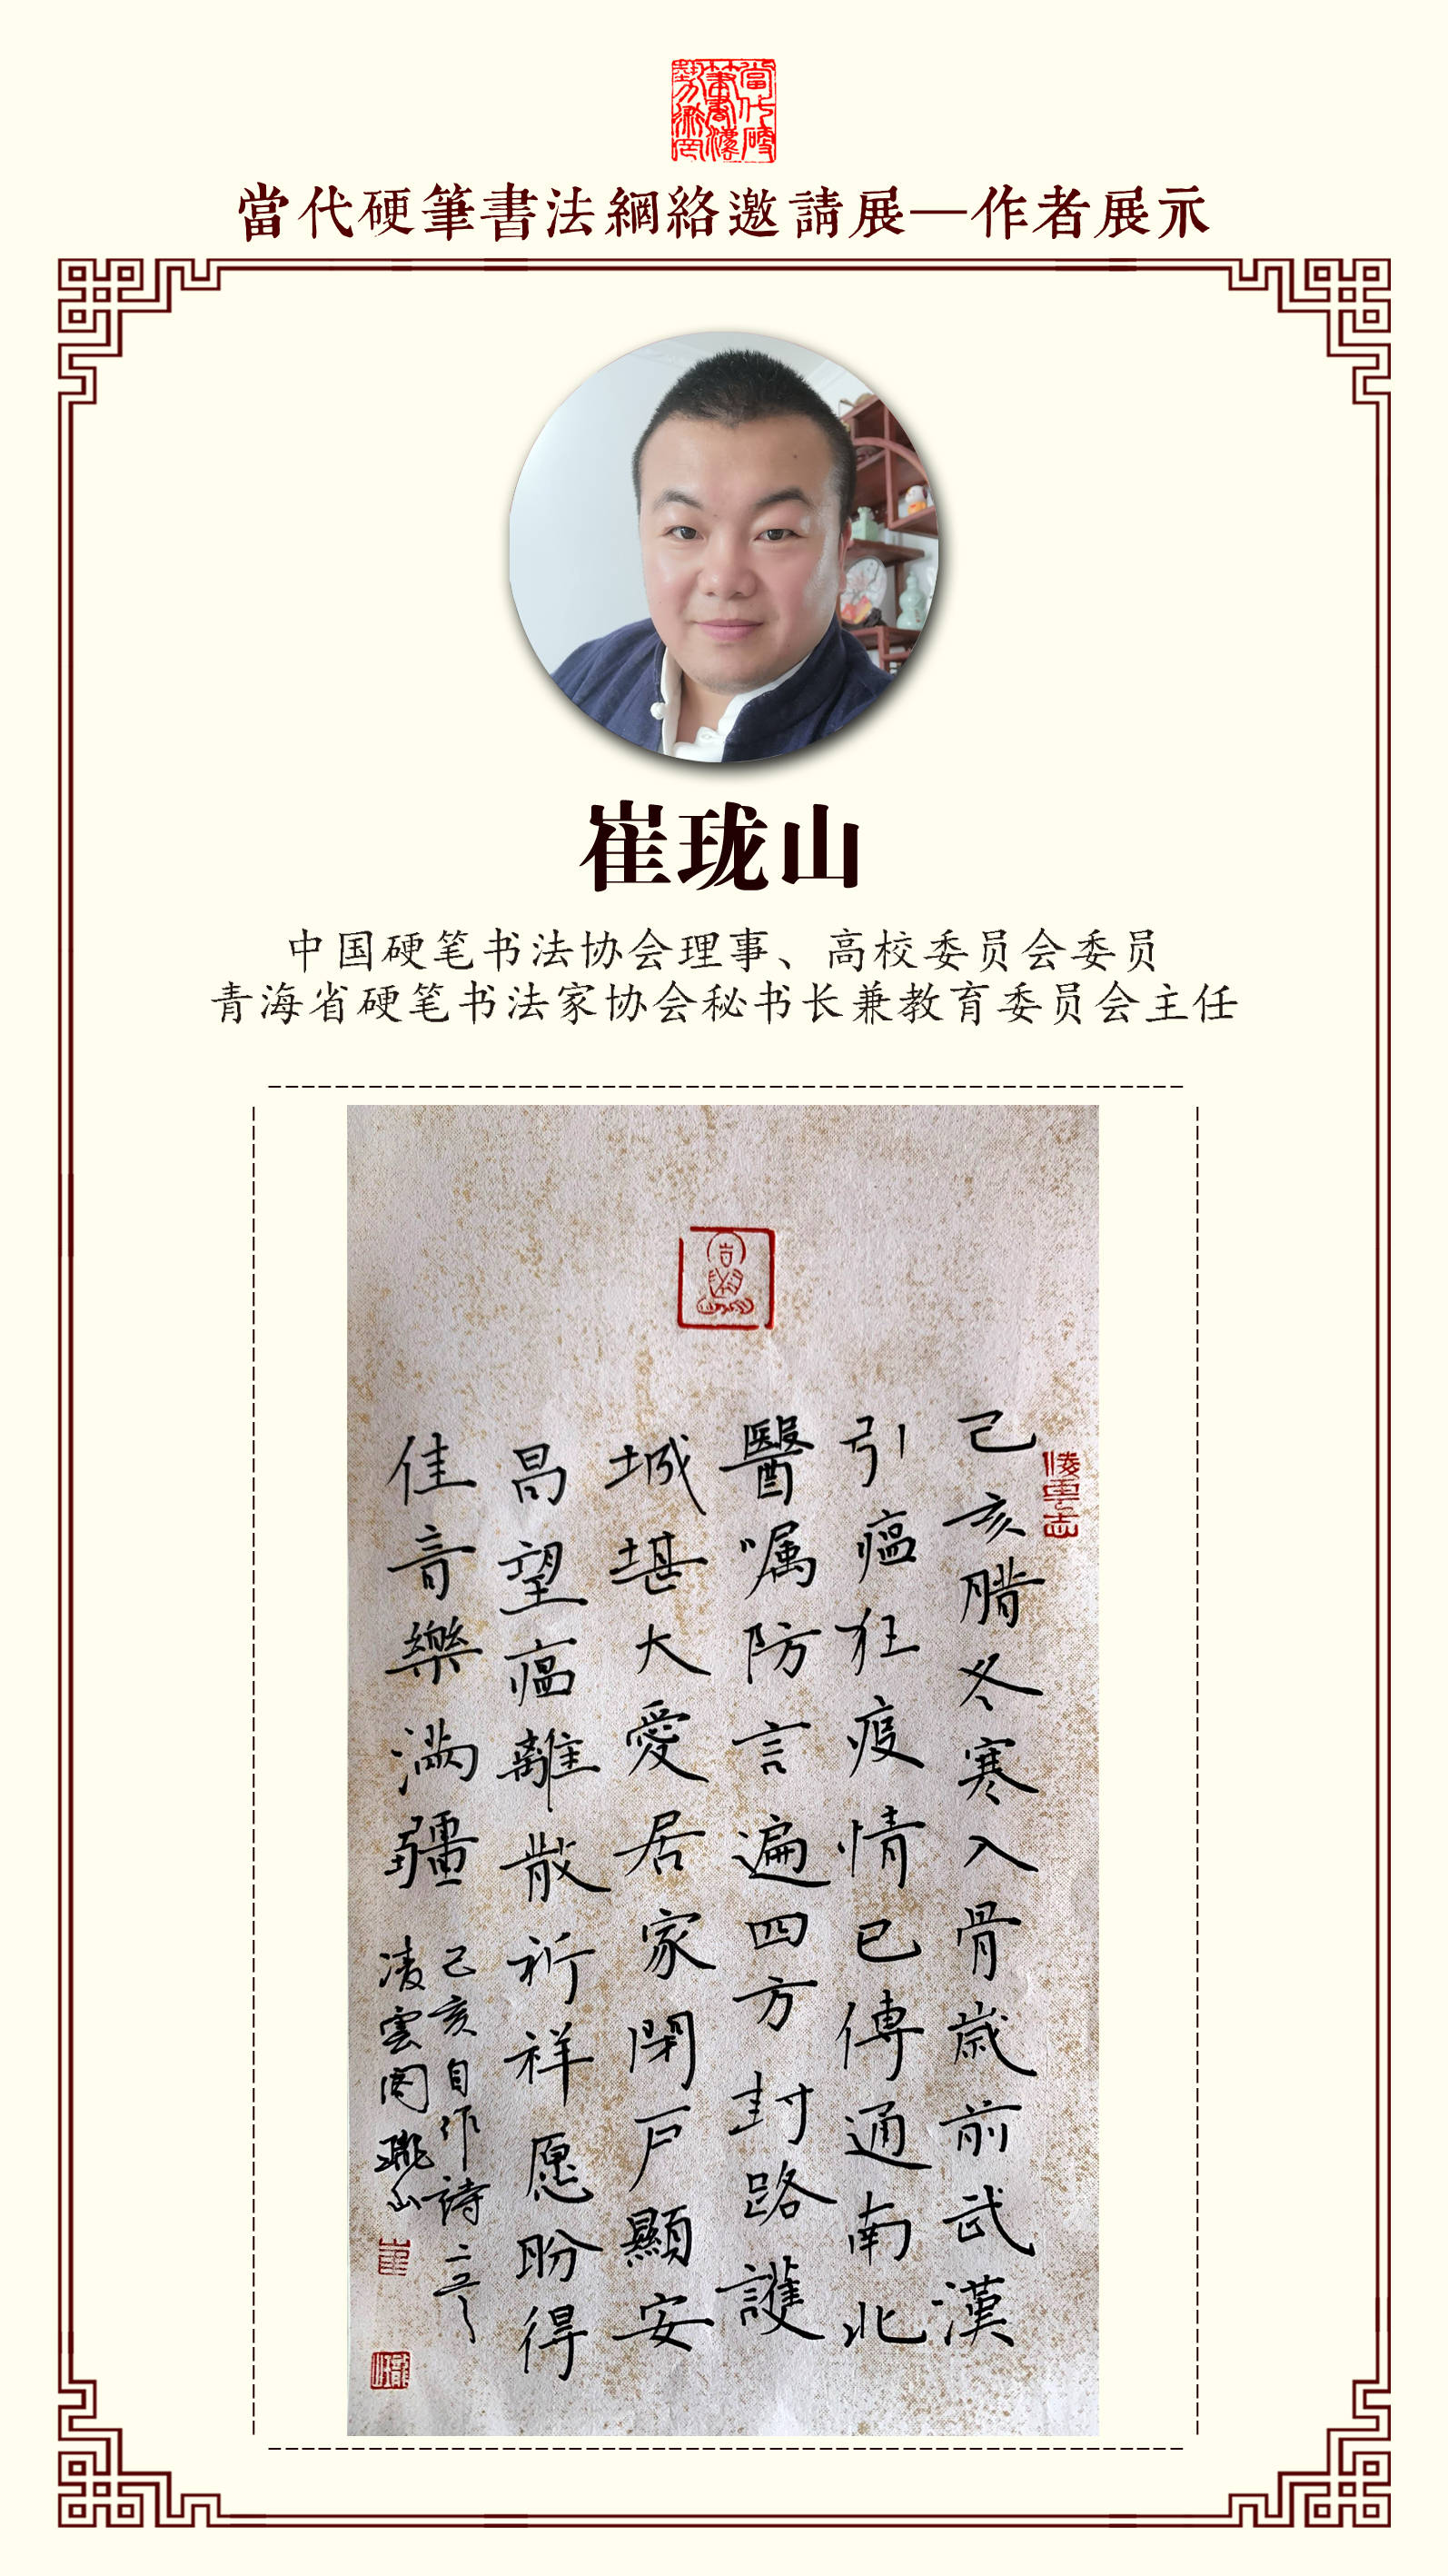 當代硬筆書法網絡邀請展—作者展示
崔珑山
中国硬笔书法协会理事、高校委员会委员
青海省硬笔书法家协会秘书长兼教育委员会主任
己亥腊冬寒入骨歲前武漢
引瘟狂疫情已傳通南北
醫嘱防言遍四方封路護
城堪大愛居家閉戸顯安
昌望瘟離散祈祥愿盼得
佳音樂满疆
己亥自作詩一首
凌雲阁瓏山
凌雲志
崔